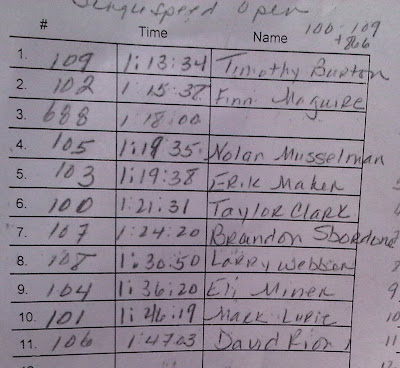 Singlespeed Open
100 - 109
+ 866
# Time Name
1. 109 1:13:34 Timothy Burton
2. 102 1:15:38 Finn Maguire
3. 688 1:18:00
4. 105 1:19:35 Nolan Musselman
5. 103 1:19:38 Erik Maker
6. 100 1:21:31 Taylor Clark
7. 107 1:24:20 Brandon Sbordone
8. 108 1:30:50 Larry Webber
9. 104 1:36:20 Eli Miner
10. 101 1:46:19 Mack
11. 106 1:47:03 David Rion